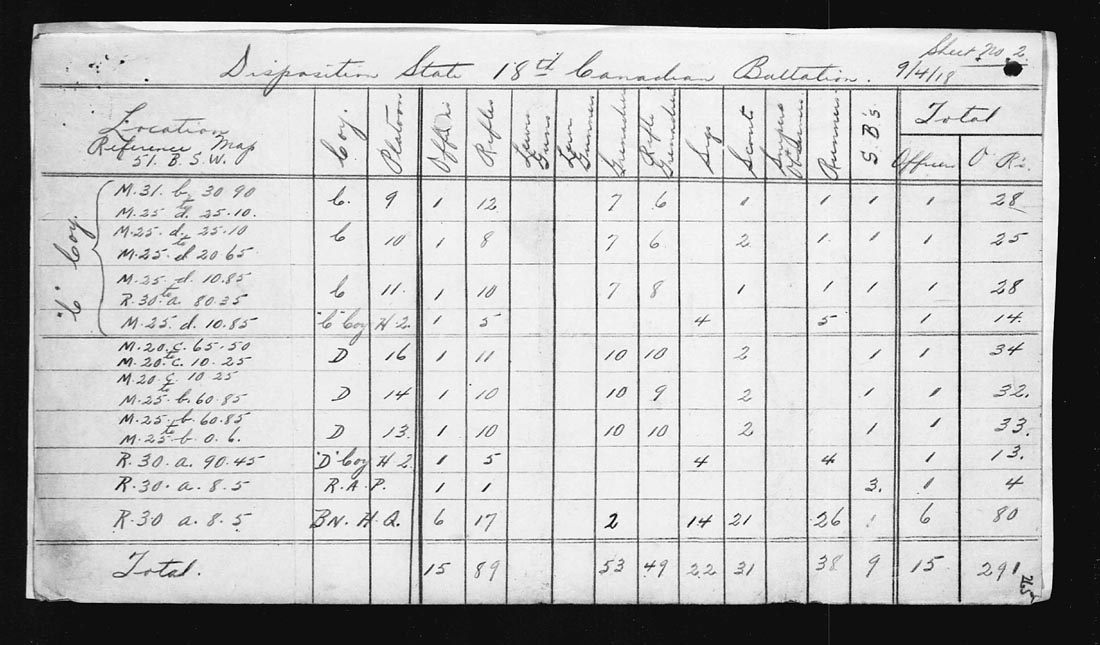 Sheet No. 2
Disposition State 18th Canadian Battalion. 9/4/18
Location Reference Map 51. B. S.W. Coy. Platoon Officers Rifles Lewis Guns Lewis Gunners Grenadiers Rifle Grenadiers Sigs Scouts Snipers Observers Runners S. B's. Total
Officers O R's.
"C" Coy.
M.31. b. 30 90 to M.25 d. 25.10. C. 9 1 12 7 6 1 1 1 1 28
M.25. d. 25.10 to M.25. d 20 65 C 10 1 8 7 6 2 1 1 1 25
M.25. d. 10.85 to R.30.a. 80.35 C 11. 1 10 7 8 1 1 1 1 28
M.25. d. 10.85 "C" Coy H.2. 1 5 4 5 1 14.
M.20.c. 65.50 to M.20.c. 10.25 D 16 1 11 10 10 2 1 1 34
M.20.c. 10 25 to M.25.b. 60.85 D 14 1 10 10 9 2 1 1 32.
M.25.b. 60.85 to M.25.b. 0.6. D 13. 1 10 10 10 2 1 1 33.
R.30.a. 90.45 "D" Coy H.2. 1 5 4 4 1 13.
R.30.a. 8.5 R.A.P. 1 1 3. 1 4
R.30 a. 8.5 BN. H.Q. 6 17 2 14 21 26 1 6 80
Total. 15 89 53 49 22 31 38 9 15 291